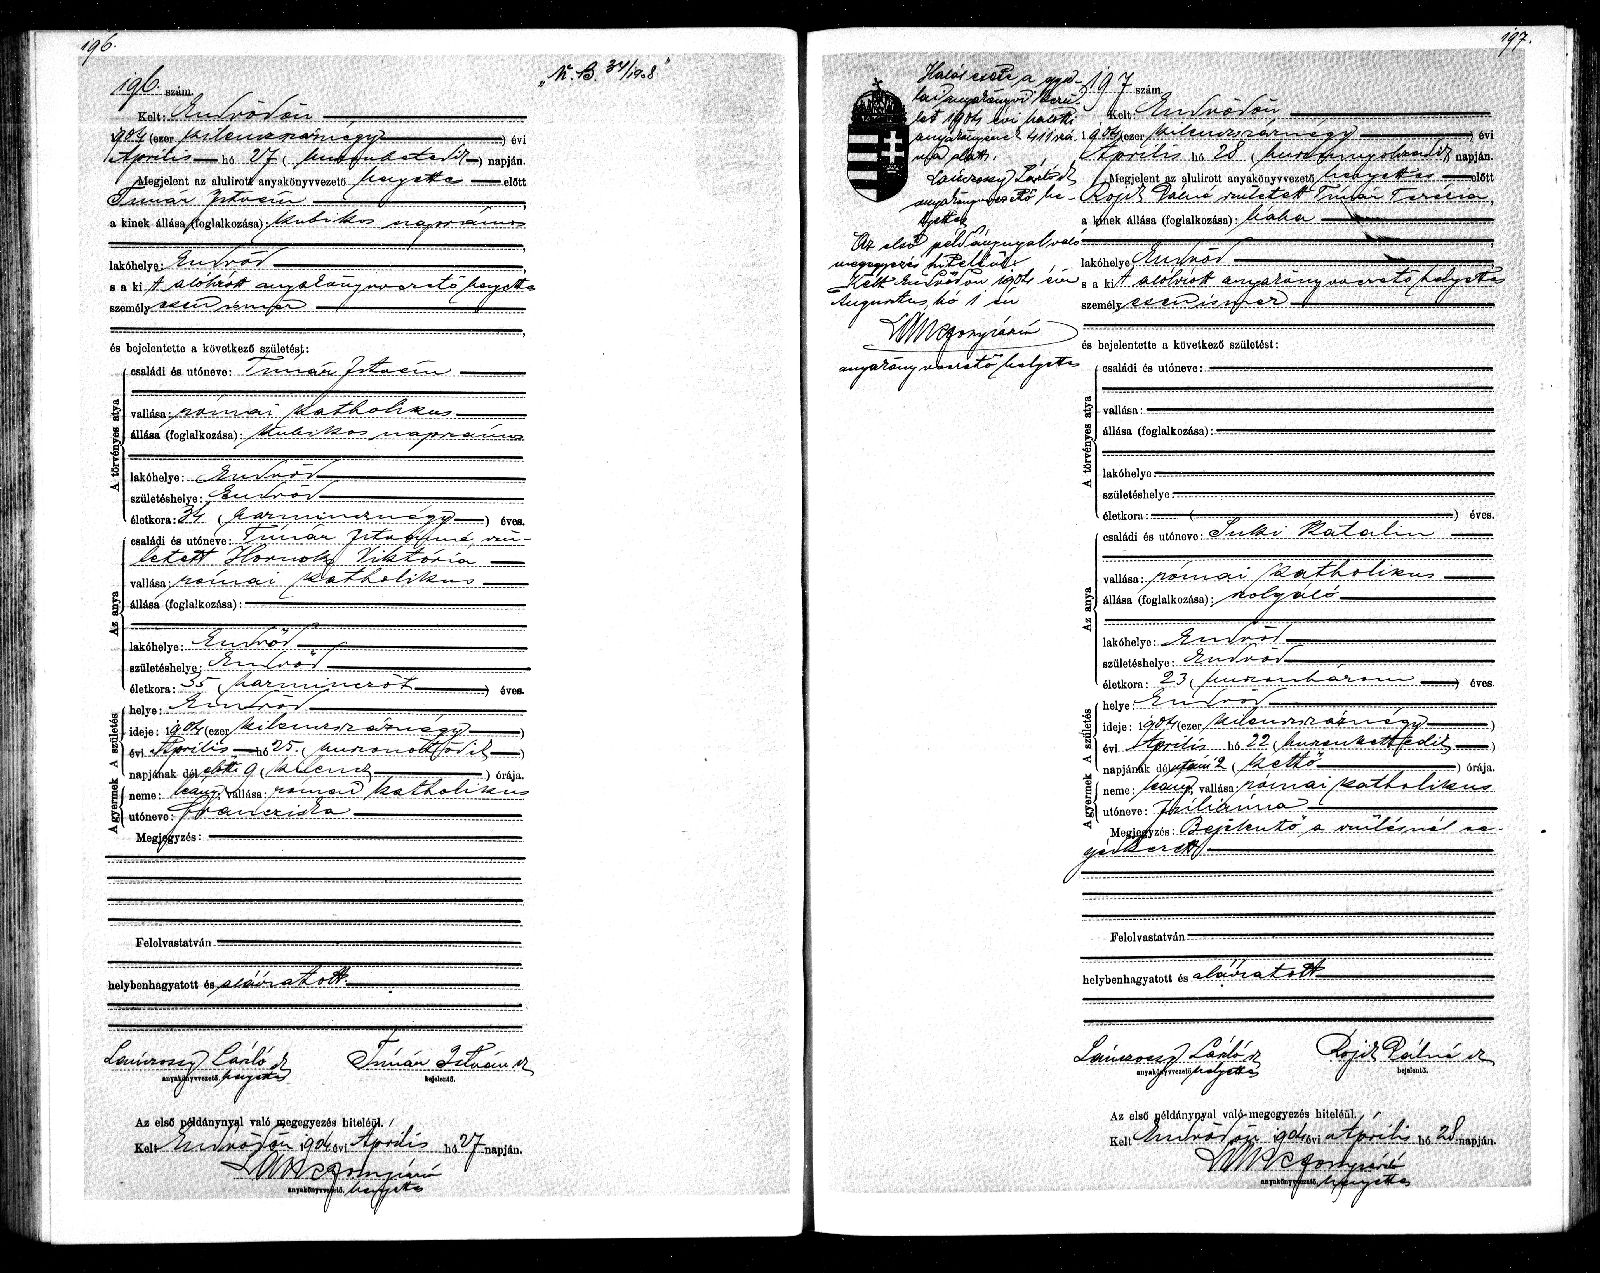 196.
196. szám.
"N. B. 34/1908"
Kelt: Endrődön
1904 (ezer kilenczszáznégy) évi
Április hó 27 (huszonhetedik) napján.
Megjelent az alulirott anyakönyvvezető helyettes előtt
Timár István,
a kinek állása (foglalkozása): kubikos napszámos
lakóhelye: Endrőd
s a ki t alólirott anyakönyvvezető helyettes
személyesen ismer,
és bejelentette a következő születést:
A törvényes atya
családi és utóneve: Timár István
vallása: római katholikus
állása (foglalkozása): kubikos napszámos
lakóhelye: Endrőd
születéshelye: Endrőd
életkora: 34 (harmincznégy) éves.
Az anya
családi és utóneve: Timár Istvánné, szü-
letett Hornok Viktória
vallása: római katholikus
állása (foglalkozása):
lakóhelye: Endrőd
születéshelye: Endrőd
életkora: 35 (harminczöt) éves.
A születés
helye: Endrőd
ideje: 1904 (ezer kilenczszáznégy)
évi Április hó 25. (huszonötödik)
napjának délelőtti 9 (kilencz) órája.
A gyermek
neme: leány, vallása: római katholikus
utóneve: Francziska
Megjegyzés:
Felolvastatván
helybenhagyatott és aláíratott.
Lánczossy László sk
anyakönyvvezető helyettes
Timár István sk
bejelentő.
Az első példánynyal való megegyezés hiteléül.
Kelt Endrődön 1904 évi Április hó 27 napján.
anyakönyvvezető, helyettes
197.
Halálesete a gyu-
lai anyakönyvi kerü-
let 1904 évi halotti
anyakönyvének 411 szá-
ma alatt.
Lánczossy László sk
anyakönyvvezető he-
lyettes
Az első példánynyal való
megegyezés hiteléül
Kelt Endrődön 1904 évi
Augusztus hó 1 én
anyakönyvvezető helyettes
197 szám.
Kelt Endrődön
1904 (ezer kilenczszáznégy) évi
Április hó 28 (huszonnyolczadik) napján.
Megjelent az alulirott anyakönyvvezető helyettes előtt
Rojik Pálné született Timár Terézia,
a kinek állása (foglalkozása): bába
lakóhelye Endrőd
s a ki t alólirott anyakönyvvezető helyettes
személyesen ismer
és bejelentette a következő születést:
A törvényes atya
családi és utóneve:
vallása:
állása (foglalkozása):
lakóhelye:
születéshelye:
életkora: ( ) éves.
Az anya
családi és utóneve: Suki Katalin
vallása: római katholikus
állása (foglalkozása): szolgáló
lakóhelye: Endrőd
születéshelye: Endrőd
életkora: 23 (huszonhárom) éves.
A születés
helye: Endrőd
ideje: 1904 (ezer kilenczszáznégy)
évi Április hó 22 (huszonkettedik)
napjának délutáni 2 (kettő) órája.
A gyermek
neme: leány, vallása: római katholikus
utóneve: Juliánna
Megjegyzés: Bejelentő a szülésnél se-
gédkezett
Felolvastatván
helybenhagyatott és aláiratott
Lánczossy László sk
anyakönyvvezető helyettes
Rojik Pálné sk
bejelentő.
Az első példánynyal való megegyezés hiteléül.
Kelt Endrődön 1904 évi Április hó 28 napján.
anyakönyvvezető, helyettes